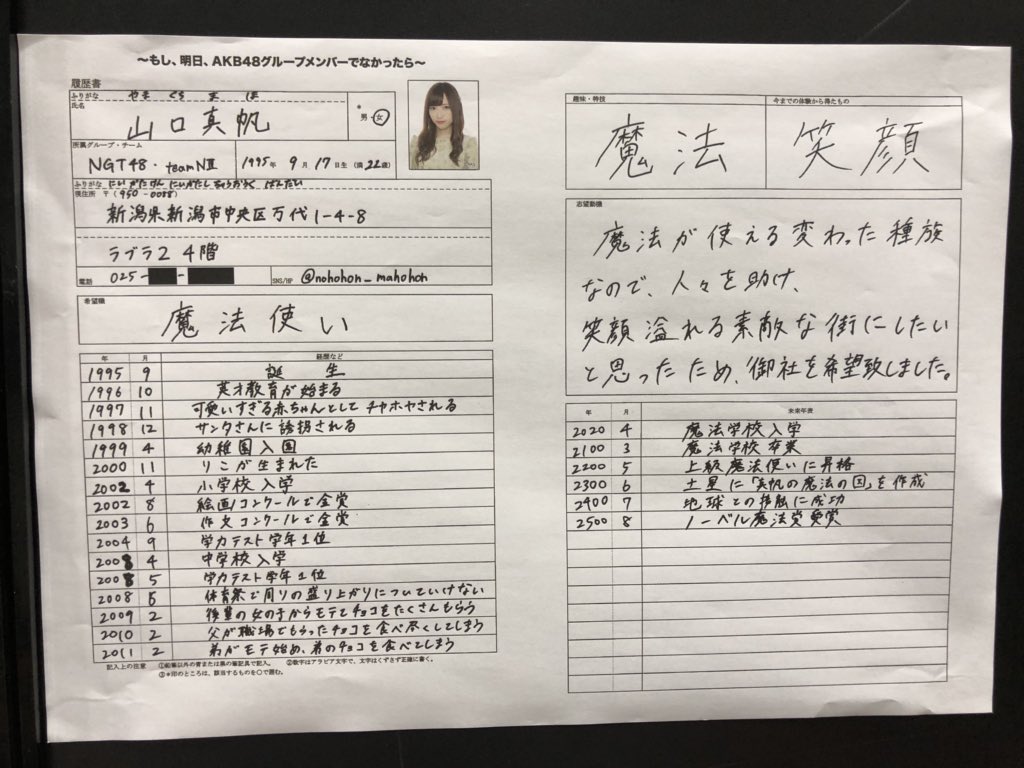 〜もし、明日、AKB48グループメンバーでなかったら〜
履歴書
ふりがな やま ぐち ま ほ
氏名
山口真帆
* 男・女
所属グループ・チーム
NGT48・teamNⅢ
1995年 9月 17日生 (満22歳)
ふりがな にいがたけん にいがたし ちゅうおうく ばんだい
現住所 〒(950-0088)
新潟県新潟市中央区万代1-4-8
ラブラ2 4階
電話 025- -
SNS/HP @nohohon_mahohon
希望職
魔法使い
年 月 経歴など
1995 9 誕生
1996 10 英才教育が始まる
1997 11 可愛いすぎる赤ちゃんとしてチヤホヤされる
1998 12 サンタさんに誘拐される
1999 4 幼稚園入園
2000 11 りこが生まれた
2002 4 小学校入学
2002 8 絵画コンクールで金賞
2003 6 作文コンクールで金賞
2004 9 学力テスト学年1位
2008 4 中学校入学
2008 5 学力テスト学年1位
2008 5 体育祭で周りの盛り上がりについていけない
2009 2 後輩の女の子からモテてチョコをたくさんもらう
2010 2 父が職場でもらったチョコを食べ尽くしてしまう
2011 2 弟がモテ始め、弟のチョコを食べてしまう
記入上の注意 ①鉛筆以外の青または黒の筆記具で記入。 ②数字はアラビア文字で、文字はくずさず正確に書く。
③*印のところは、該当するものを○で囲む。
趣味・特技
魔法
今までの体験から得たもの
笑顔
志望動機
魔法が使える変わった種族
なので、人々を助け、
笑顔溢れる素敵な街にしたい
と思ったため、御社を希望致しました。
年 月 未来年表
2020 4 魔法学校入学
2100 3 魔法学校卒業
2200 5 上級魔法使いに昇格
2300 6 土星に「真帆の魔法の国」を作成
2400 7 地球との接触に成功
2500 8 ノーベル魔法賞受賞